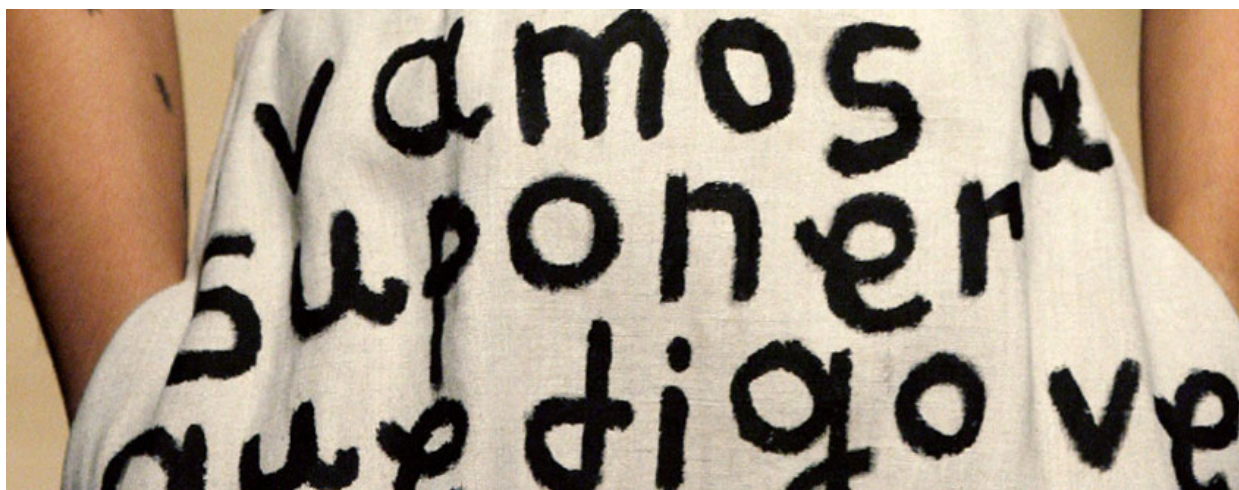 vamos a
suponer
que digo ve